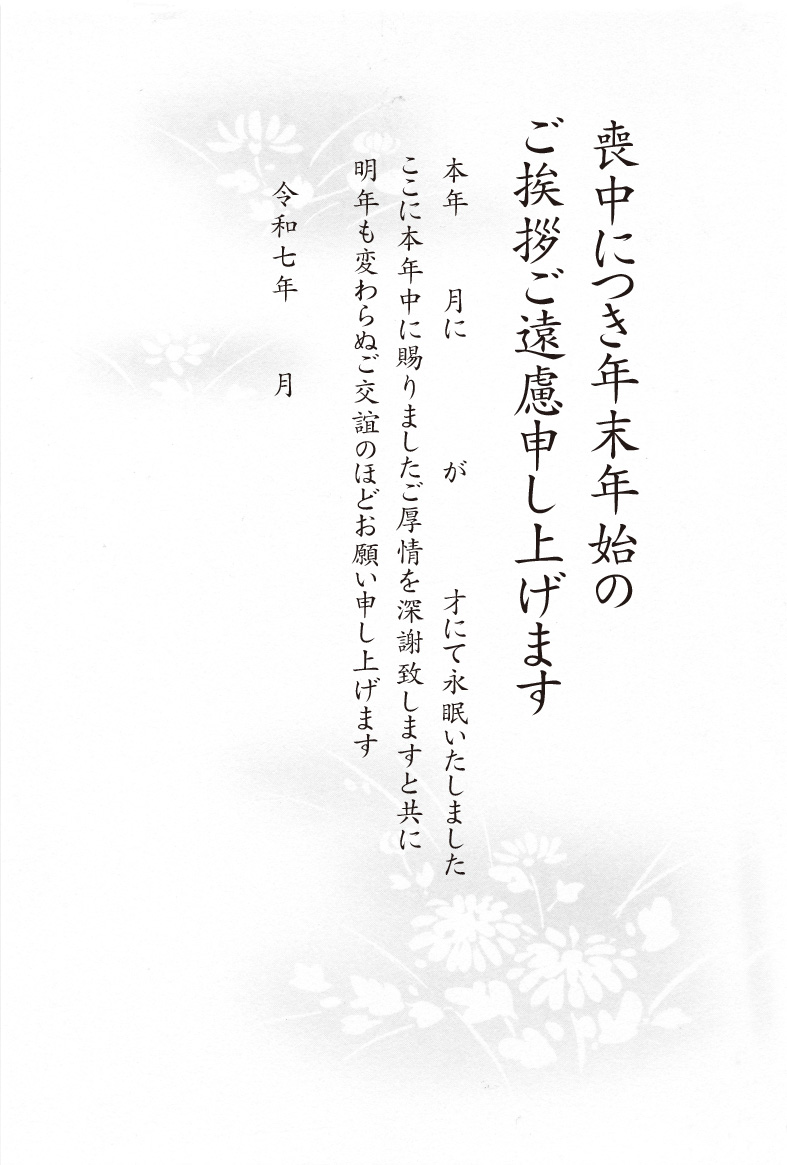 喪中につき年末年始の
ご挨拶ご遠慮申し上げます
本年　月に　　が　　才にて永眠いたしました
ここに本年中に賜りましたご厚情を深謝致しますと共に
明年も変わらぬご交誼のほどお願い申し上げます
令和七年　月